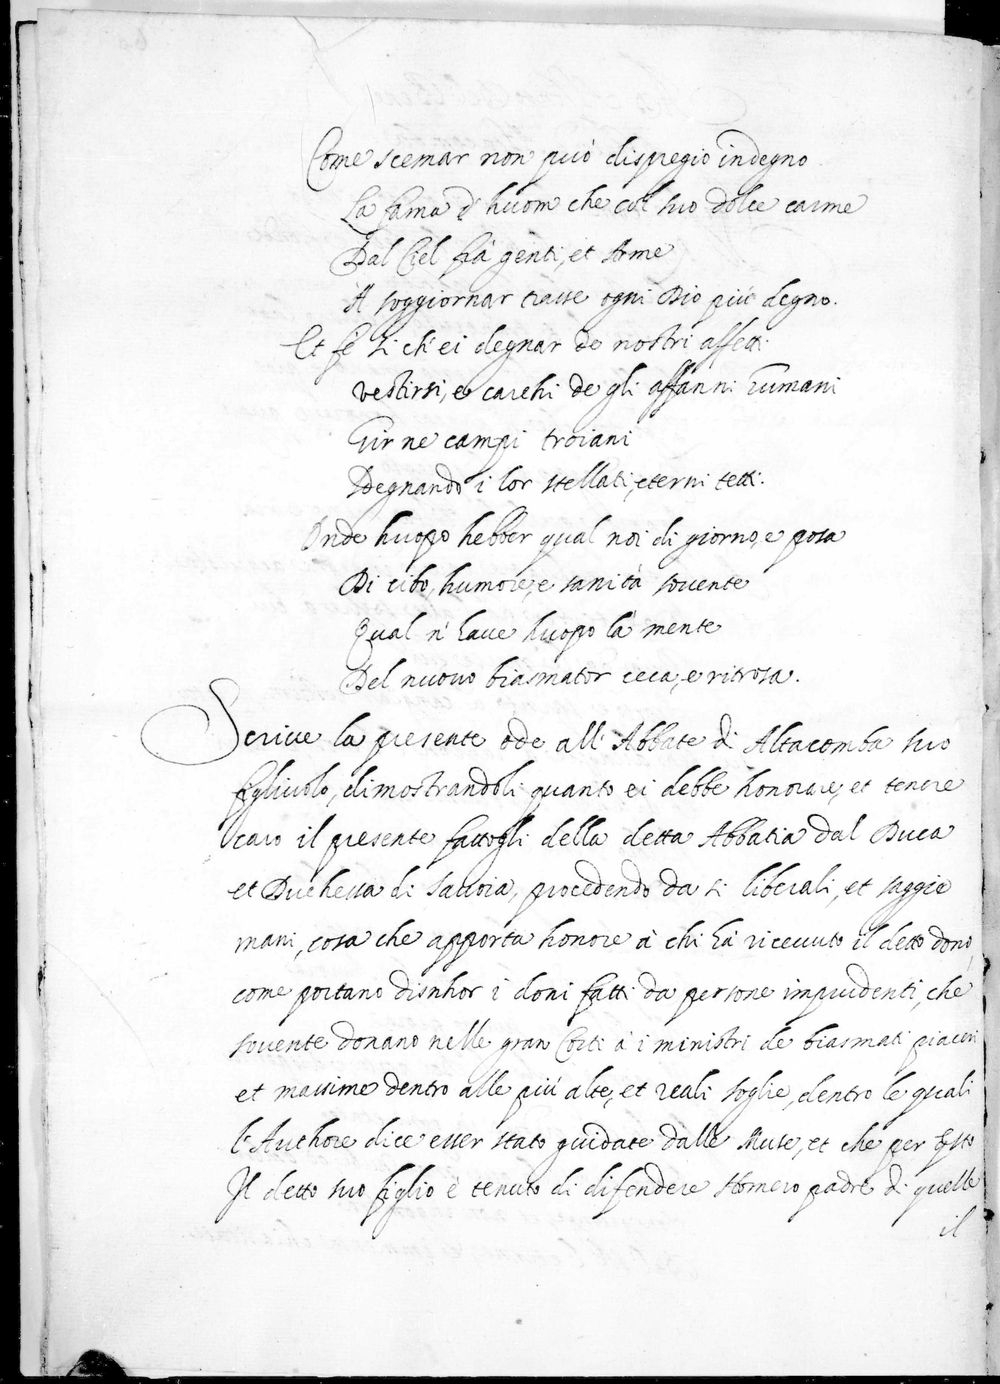 Come scemar non può dispregio indegno
La fama d' huom che col suo dolce carme
Dal Ciel frà genti, et Arme
A soggiornar trasse ogni Dio più degno.
Et fè sì ch' ei degnar de nostri affetti
vestirsi, e carchi de gli affanni humani
Gir ne campi troiani
Sdegnando i lor stellati, eterni tetti.
Onde huopo hebber qual noi di giorno, e posa
Di cibo, humore, e sanità sovente
Qual n' have huopo la mente
Del nuovo biasmator ceca, e ritrosa.
Scrive la presente ode all' Abbate di Altacomba suo
figliuolo, dimostrandoli quanto ei debbe honorare, et tenere
caro il presente fattogli della detta Abbatia dal Duca
et Duchessa di Savoia, procedendo da si liberali, et saggie
mani, cosa che apporta honore à chi hà ricevuto il detto dono,
come portano disnhor i doni fatti da persone imprudenti, che
sovente donano nelle gran Corti à i ministri de biasmati piaceri
et massime dentro alle più alte, et reali soglie, dentro le quali
l' Authore dice esser stato guidate dalle Muse, et che per questo
Il detto suo figlio è tenuto di difendere Homero padre di quelle
il